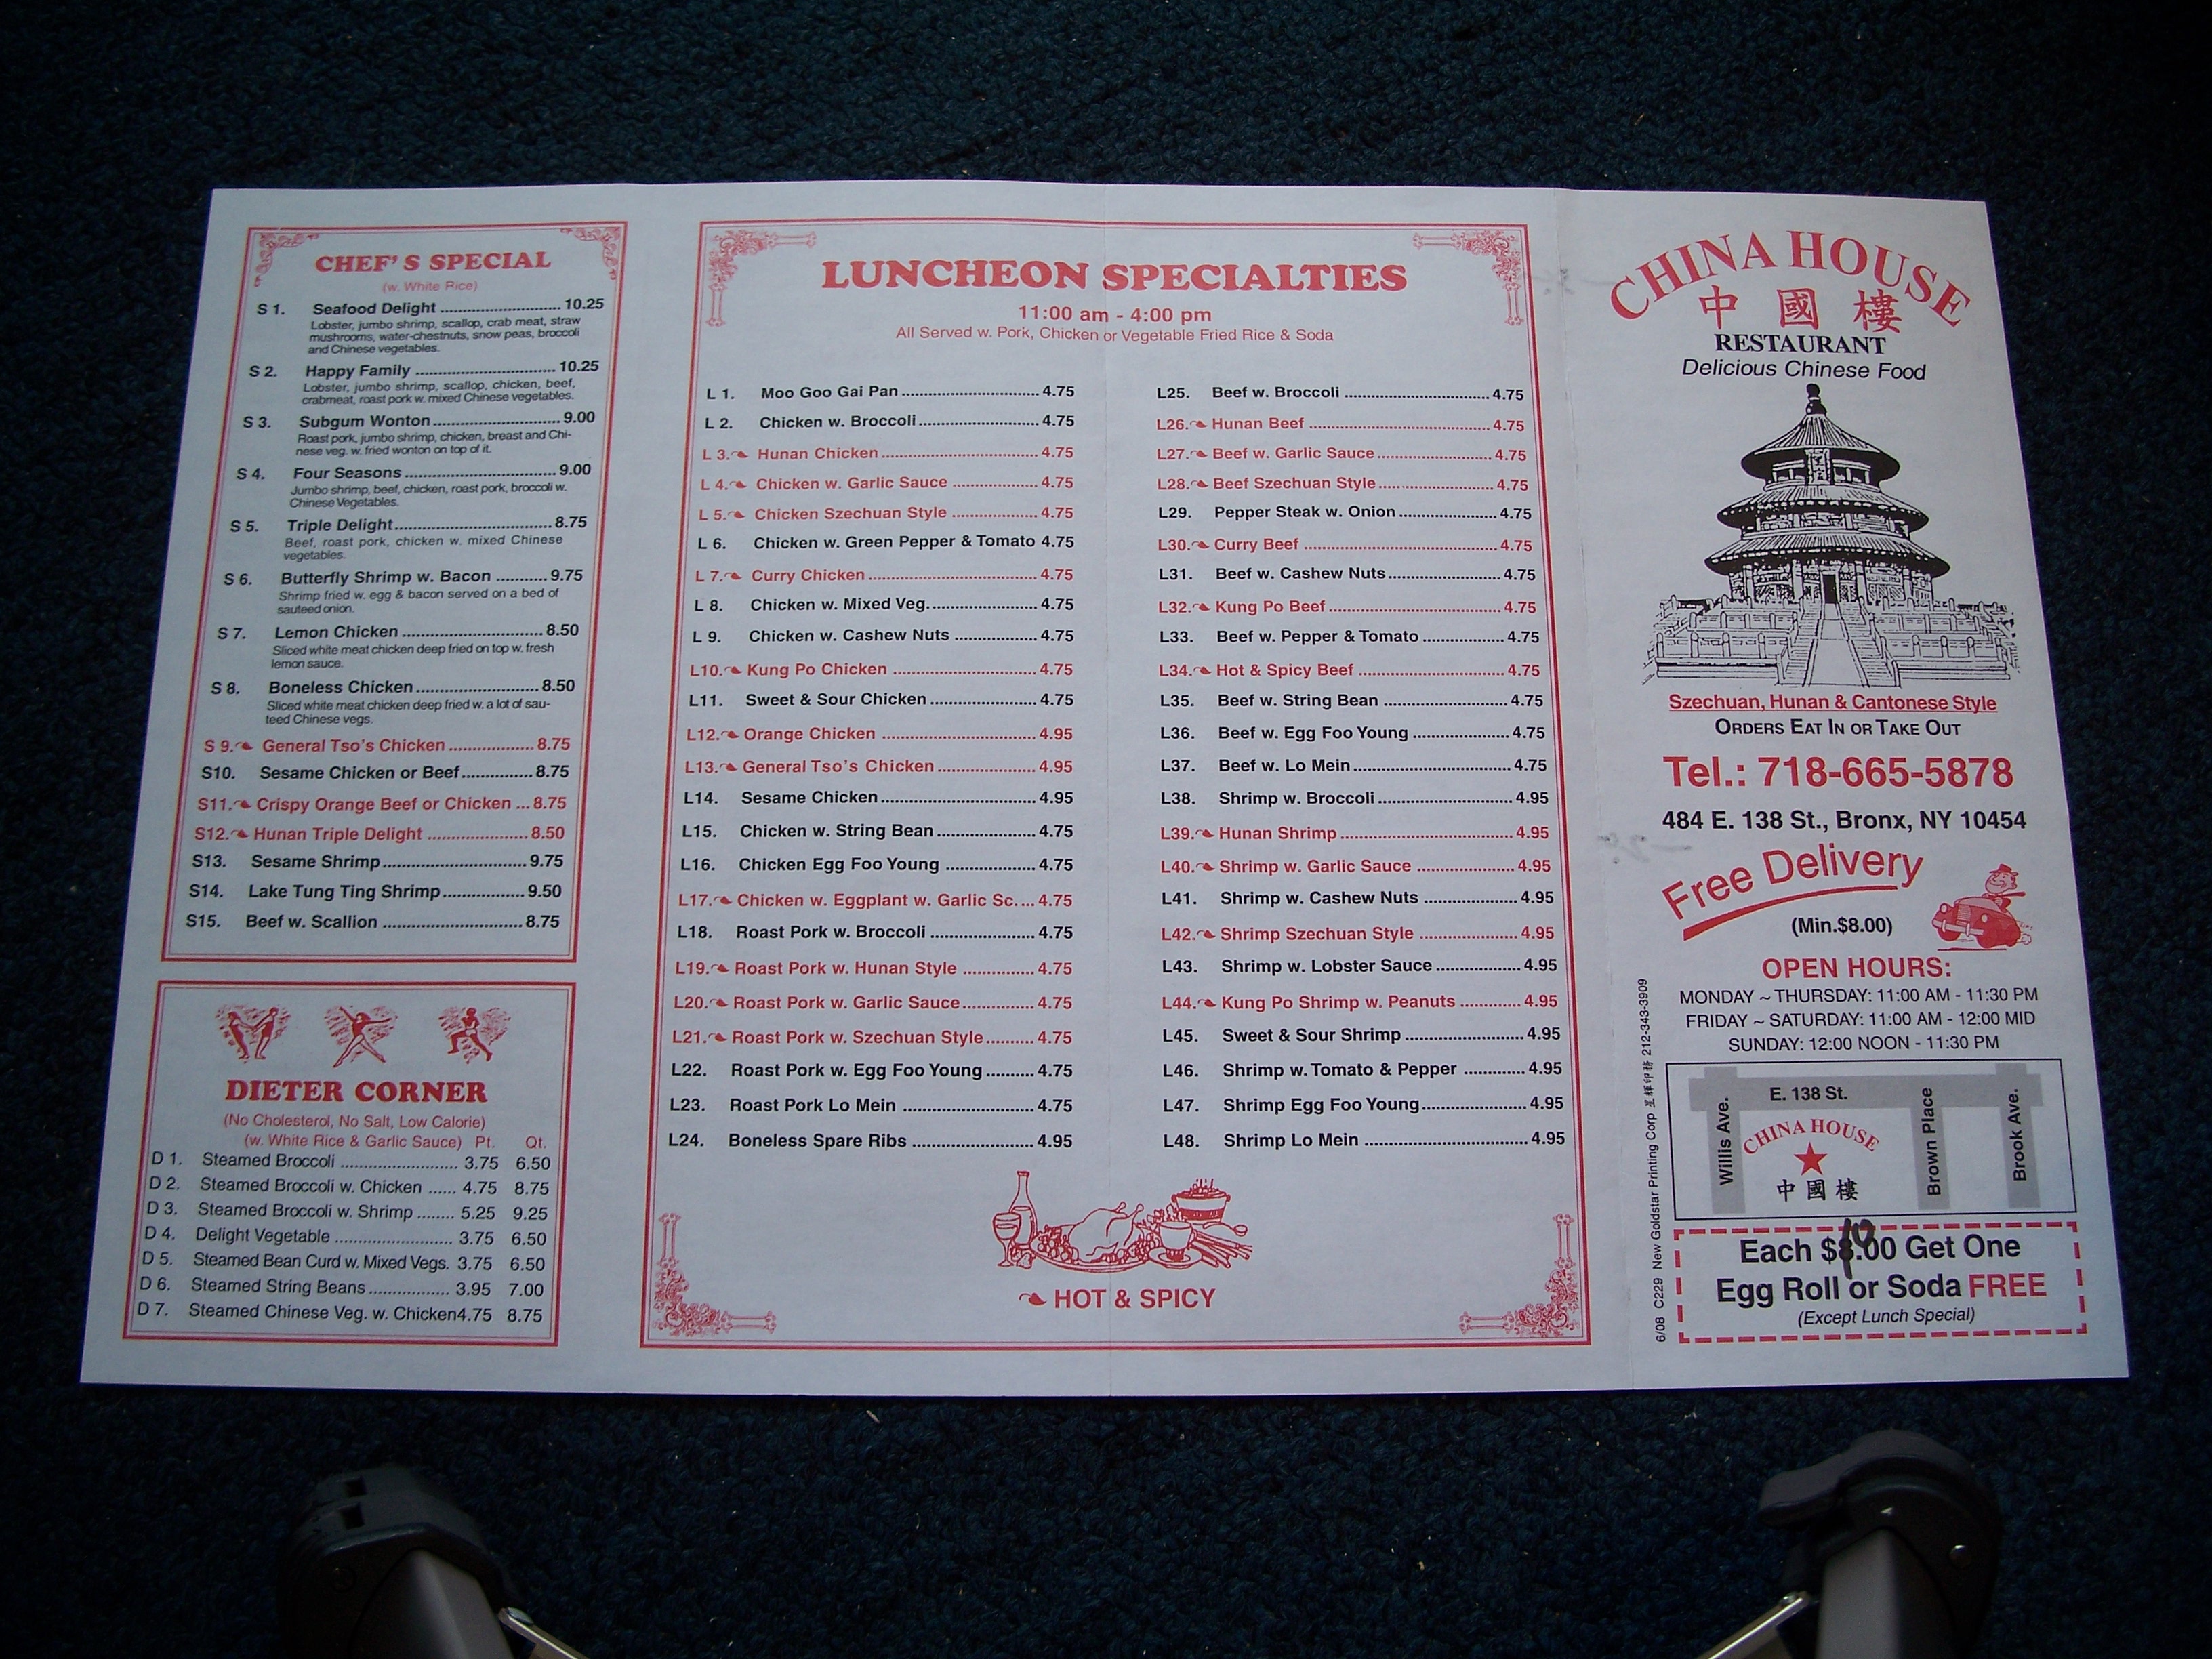 CHEF'S SPECIAL
(w. White Rice)
S 1. Seafood Delight ........................... 10.25
Lobster, jumbo shrimp, scallop, crab meat, straw
mushrooms, water-chestnuts, snow peas, broccoli
and Chinese vegetables.
S 2. Happy Family ............................... 10.25
Lobster, jumbo shrimp, scallop, chicken, beef,
crabmeat, roast pork w. mixed Chinese vegetables.
S 3. Subgum Wonton ............................ 9.00
Roast pork, jumbo shrimp, chicken, breast and Chi-
nese veg. w. fried wonton on top of it.
S 4. Four Seasons ................................. 9.00
Jumbo shrimp, beef, chicken, roast pork, broccoli w.
Chinese Vegetables.
S 5. Triple Delight .................................. 8.75
Beef, roast pork, chicken w. mixed Chinese
vegetables.
S 6. Butterfly Shrimp w. Bacon ........... 9.75
Shrimp fried w. egg & bacon served on a bed of
sauteed onion.
S 7. Lemon Chicken ............................... 8.50
Sliced white meat chicken deep fried on top w. fresh
lemon sauce.
S 8. Boneless Chicken ........................... 8.50
Sliced white meat chicken deep fried w. a lot of sau-
teed Chinese vegs.
S 9. General Tso's Chicken ................... 8.75
S10. Sesame Chicken or Beef ............... 8.75
S11. Crispy Orange Beef or Chicken ... 8.75
S12. Hunan Triple Delight ...................... 8.50
S13. Sesame Shrimp ............................... 9.75
S14. Lake Tung Ting Shrimp .................. 9.50
S15. Beef w. Scallion ............................... 8.75
DIETER CORNER
(No Cholesterol, No Salt, Low Calorie)
(w. White Rice & Garlic Sauce) Pt. Qt.
D 1. Steamed Broccoli .......................... 3.75 6.50
D 2. Steamed Broccoli w. Chicken ...... 4.75 8.75
D 3. Steamed Broccoli w. Shrimp ........ 5.25 9.25
D 4. Delight Vegetable .......................... 3.75 6.50
D 5. Steamed Bean Curd w. Mixed Vegs. 3.75 6.50
D 6. Steamed String Beans .................. 3.95 7.00
D 7. Steamed Chinese Veg. w. Chicken4.75 8.75
LUNCHEON SPECIALTIES
11:00 am - 4:00 pm
All Served w. Pork, Chicken or Vegetable Fried Rice & Soda
L 1. Moo Goo Gai Pan ............................ 4.75
L 2. Chicken w. Broccoli ......................... 4.75
L 3. Hunan Chicken ................................ 4.75
L 4. Chicken w. Garlic Sauce ................. 4.75
L 5. Chicken Szechuan Style .................. 4.75
L 6. Chicken w. Green Pepper & Tomato 4.75
L 7. Curry Chicken .................................. 4.75
L 8. Chicken w. Mixed Veg. ..................... 4.75
L 9. Chicken w. Cashew Nuts ................. 4.75
L10. Kung Po Chicken ............................. 4.75
L11. Sweet & Sour Chicken ..................... 4.75
L12. Orange Chicken ............................... 4.95
L13. General Tso's Chicken .................... 4.95
L14. Sesame Chicken .............................. 4.95
L15. Chicken w. String Bean ................... 4.75
L16. Chicken Egg Foo Young .................. 4.75
L17. Chicken w. Eggplant w. Garlic Sc. ... 4.75
L18. Roast Pork w. Broccoli ..................... 4.75
L19. Roast Pork w. Hunan Style .............. 4.75
L20. Roast Pork w. Garlic Sauce .............. 4.75
L21. Roast Pork w. Szechuan Style .......... 4.75
L22. Roast Pork w. Egg Foo Young .......... 4.75
L23. Roast Pork Lo Mein .......................... 4.75
L24. Boneless Spare Ribs ........................ 4.95
L25. Beef w. Broccoli .............................. 4.75
L26. Hunan Beef ..................................... 4.75
L27. Beef w. Garlic Sauce ....................... 4.75
L28. Beef Szechuan Style ....................... 4.75
L29. Pepper Steak w. Onion .................... 4.75
L30. Curry Beef ....................................... 4.75
L31. Beef w. Cashew Nuts ....................... 4.75
L32. Kung Po Beef ................................... 4.75
L33. Beef w. Pepper & Tomato ................. 4.75
L34. Hot & Spicy Beef .............................. 4.75
L35. Beef w. String Bean ......................... 4.75
L36. Beef w. Egg Foo Young .................... 4.75
L37. Beef w. Lo Mein ................................ 4.75
L38. Shrimp w. Broccoli ........................... 4.95
L39. Hunan Shrimp ................................... 4.95
L40. Shrimp w. Garlic Sauce .................... 4.95
L41. Shrimp w. Cashew Nuts ................... 4.95
L42. Shrimp Szechuan Style .................... 4.95
L43. Shrimp w. Lobster Sauce ................. 4.95
L44. Kung Po Shrimp w. Peanuts ............ 4.95
L45. Sweet & Sour Shrimp ........................ 4.95
L46. Shrimp w. Tomato & Pepper ............. 4.95
L47. Shrimp Egg Foo Young ..................... 4.95
L48. Shrimp Lo Mein ................................. 4.95
HOT & SPICY
CHINA HOUSE
中國樓
RESTAURANT
Delicious Chinese Food
Szechuan, Hunan & Cantonese Style
ORDERS EAT IN OR TAKE OUT
Tel.: 718-665-5878
484 E. 138 St., Bronx, NY 10454
Free Delivery
(Min.$8.00)
OPEN HOURS:
MONDAY ~ THURSDAY: 11:00 AM - 11:30 PM
FRIDAY ~ SATURDAY: 11:00 AM - 12:00 MID
SUNDAY: 12:00 NOON - 11:30 PM
E. 138 St.
Willis Ave.
CHINA HOUSE
中國樓
Brown Place
Brook Ave.
10
Each $8.00 Get One
Egg Roll or Soda FREE
(Except Lunch Special)
6/08 C229 New Goldstar Printing Corp 212-343-3909